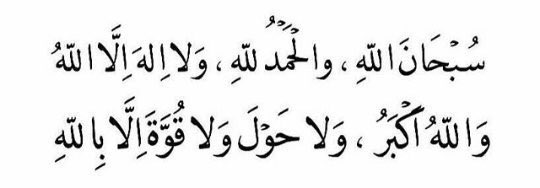 سُبْحَانَ اللّٰهِ ، والْحَمْدُ لِلّٰهِ ، وَلَا اِلٰهَ اِلَّا اللّٰهُ
وَاللّٰهُ اَكْبَرُ ، وَلَا حَوْلَ وَلَا قُوَّةَ اِلَّا بِاللّٰهِ